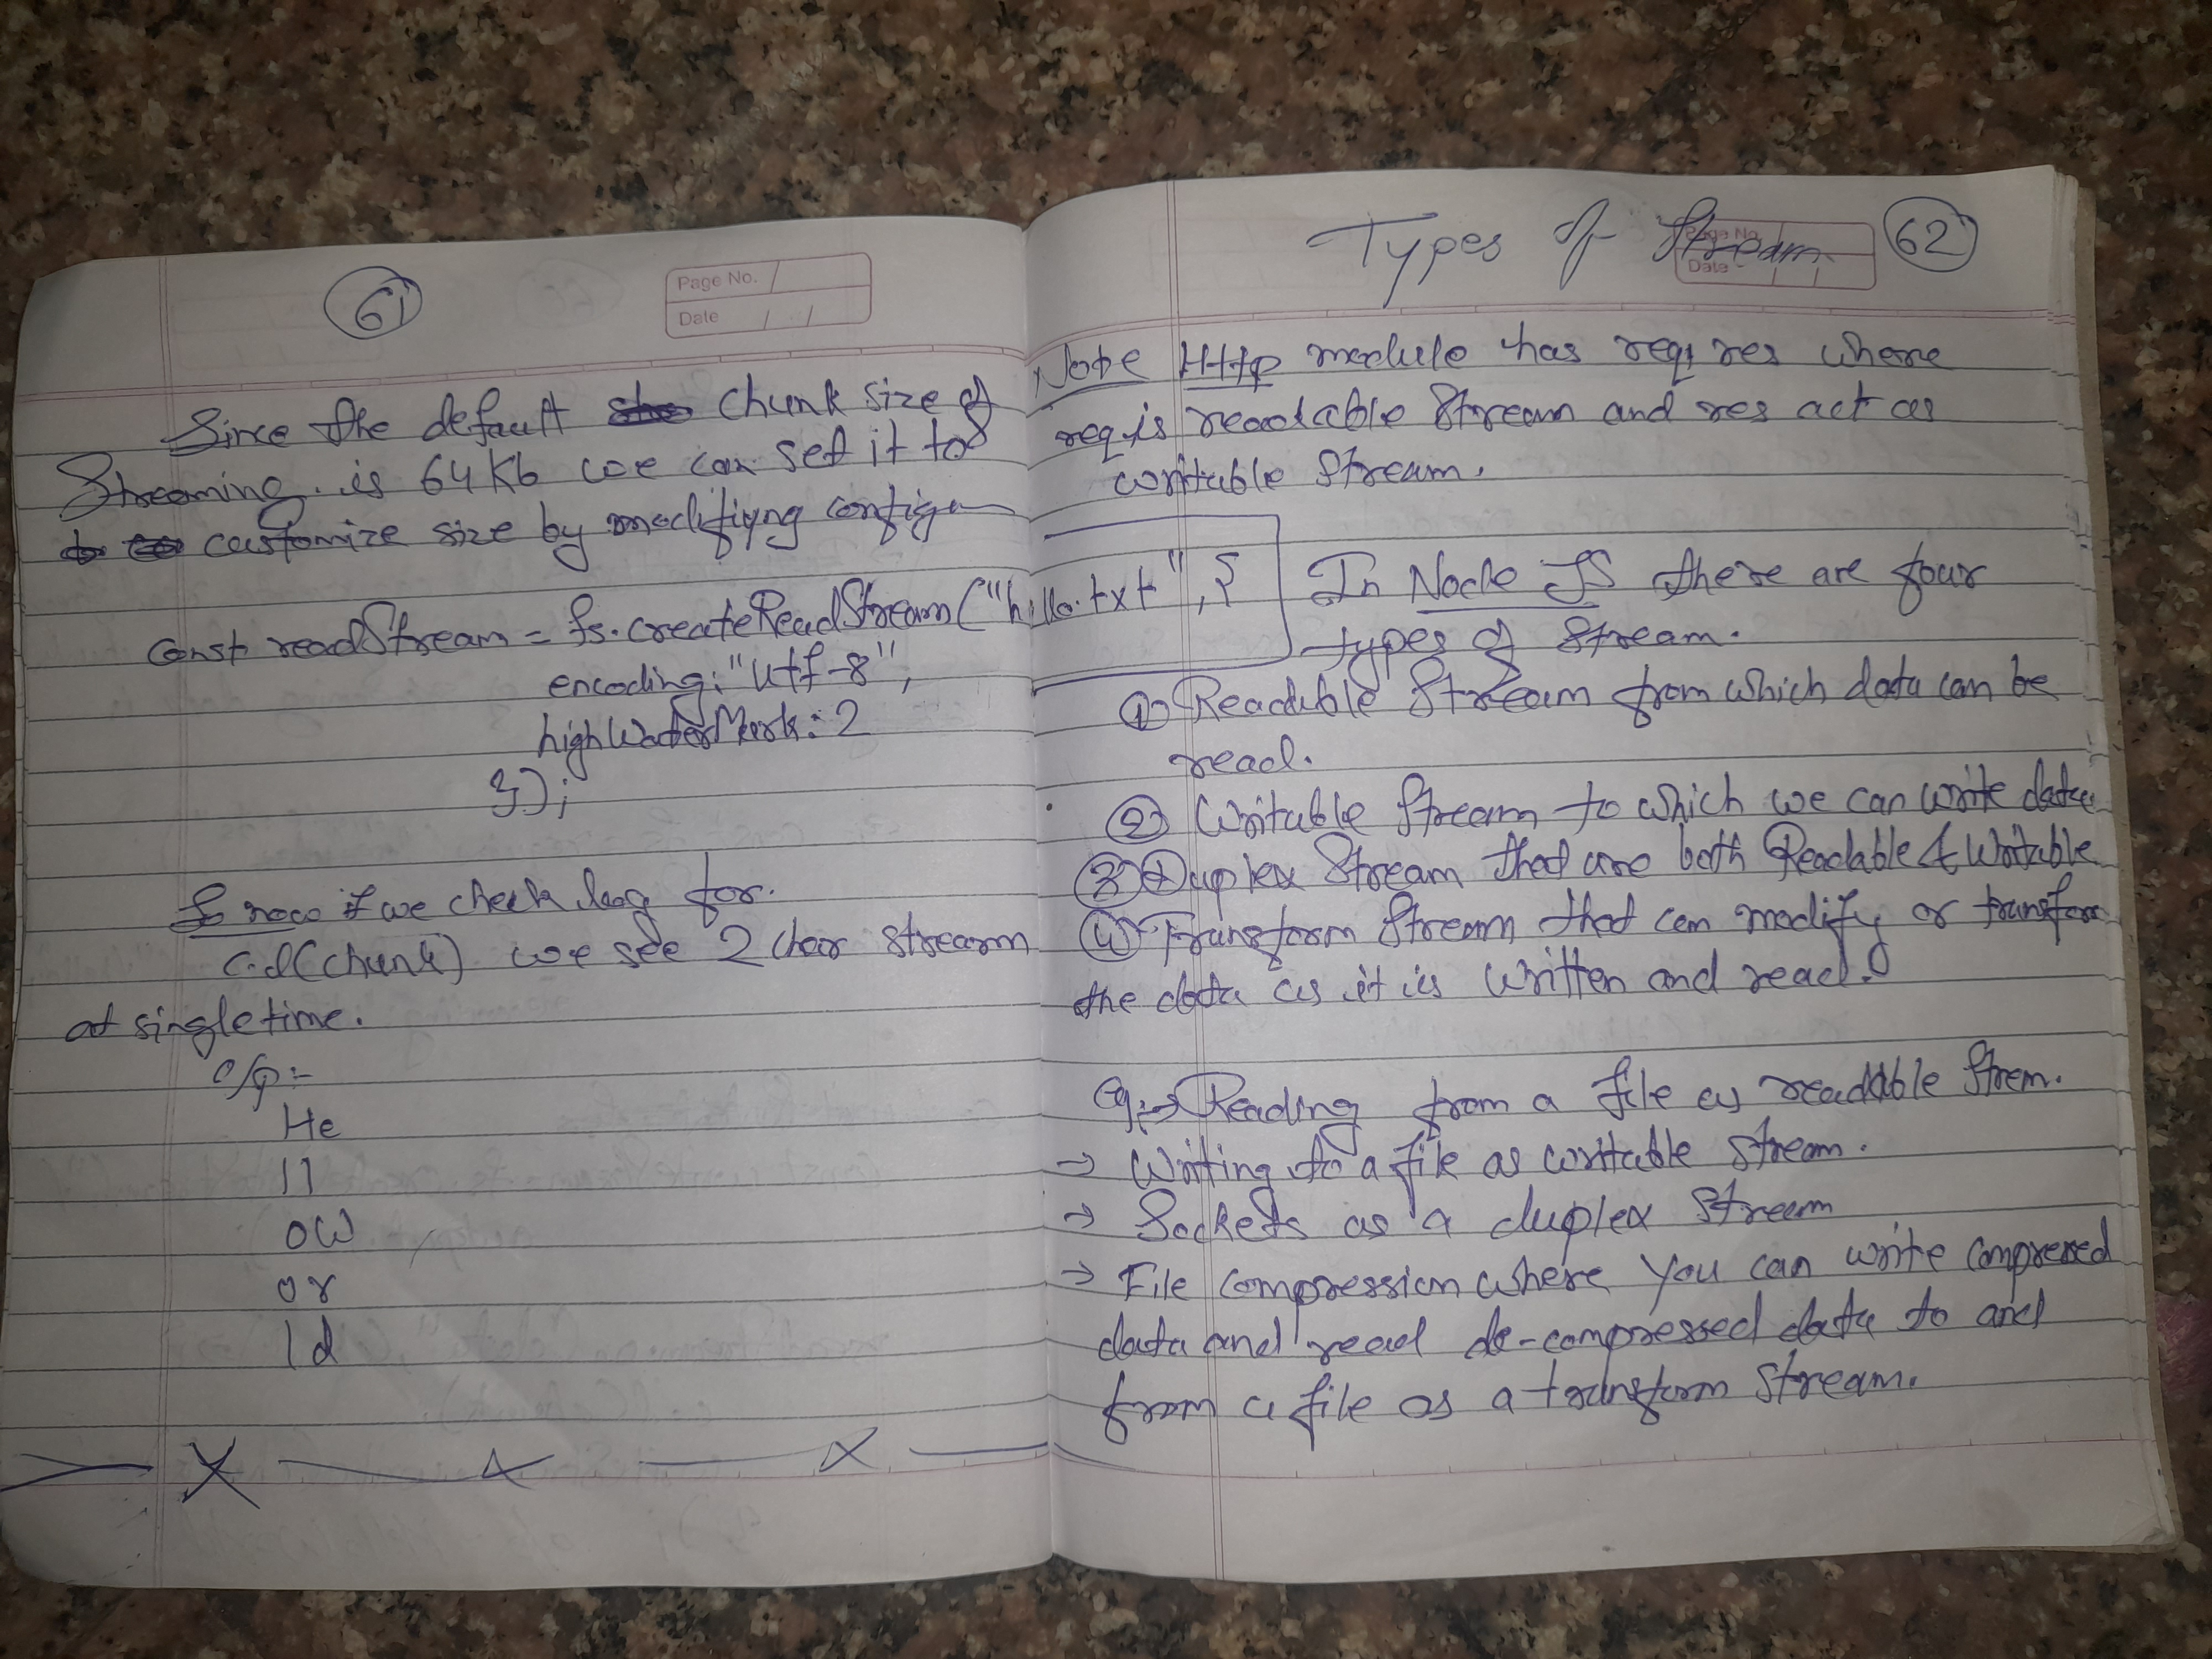 61
Page No.
Date
Since the default chunk size of
Streaming. is 64 Kb we can set it to
customize size by modifiyng configen
const readStream = fs.createReadStream("hello.txt", {
encoding: "utf-8",
highWaterMark: 2
});
now if we check log for.
c.l(chunk) we see 2 char strearm
at single time.
o/p:-
He
ll
ow
or
ld
Types of Stream
62
Page No.
Date
Note Http module has req, res where
req is readable stream and res act as
writable stream.
In Node JS there are four
types of stream.
① Readable Stream from which data can be
read.
② Writable Stream to which we can write data
③ Duplex Stream that are both Readable & Writable
④ Transform Stream that can modify or transform
the data as it is written and read.
eg:→ Reading from a file as readable Strem.
→ Writing to a file as writable stream.
→ Sockets as a duplex Stream
→ File compression where you can write compressed
data and read de-compressed data to and
from a file as a transform stream.